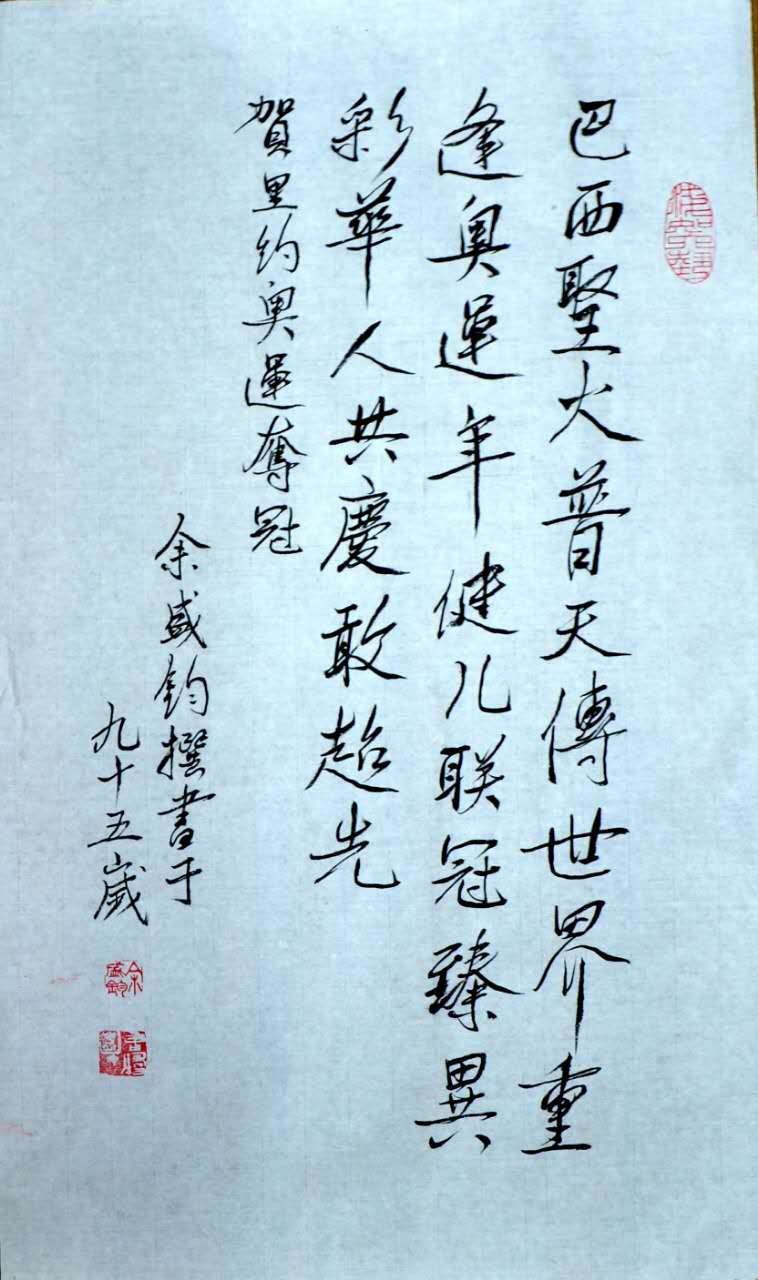 巴西聖火普天傳世界重
逢奥運年健儿联冠臻異
彩華人共慶敢超先
賀里约奥運奪冠
余盛鈞撰書于
九十五歲
余盛鈞